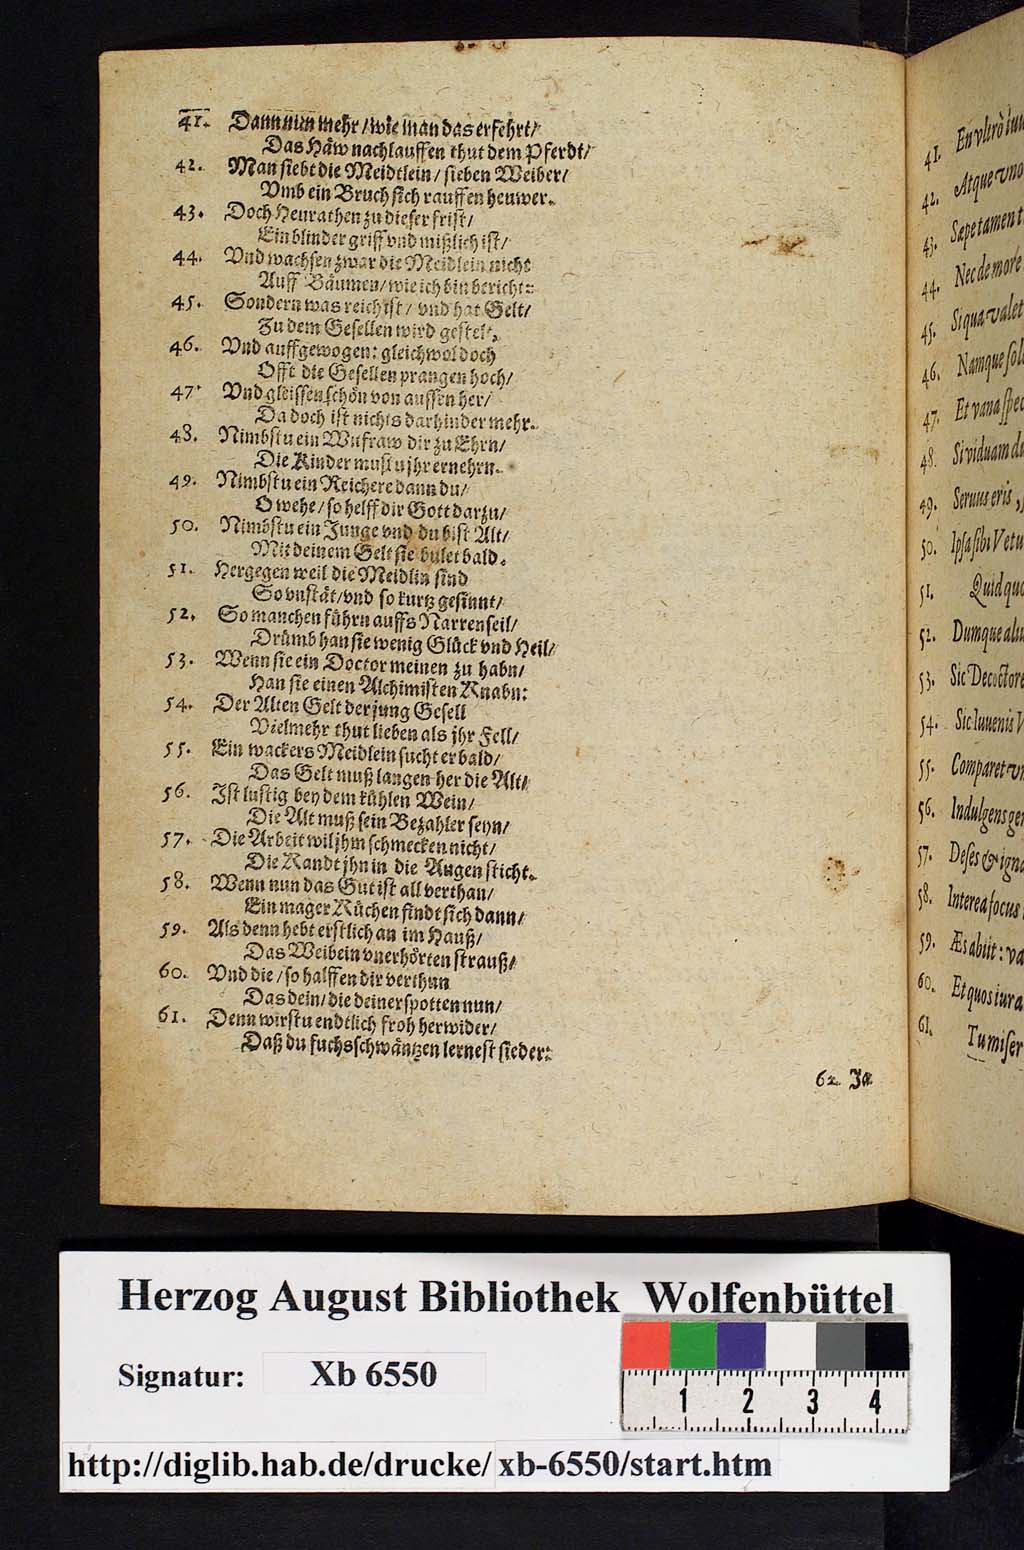 41. Dann nun mehr / wie man das erfehrt /
Das Häw nachlauffen thut dem Pferdt /
42. Man siebt die Meidtlein / sieben Weiber /
Vmb ein Bruch sich rauffen heuwer.
43. Doch Heurathen zu dieser frist /
Ein blinder griff vnd mißlich ist /
44. Vnd wachsen zwar die Meidlein nicht
Auff Bäumen / wie ich bin bericht:
45. Sondern was reich ist / vnd hat Gelt /
Zu dem Gesellen wird gestelt.
46. Vnd auffgewogen: gleichwol doch
Offt die Gesellen prangen hoch /
47. Vnd gleissen schön von aussen her /
Da doch ist nichts darhinder mehr.
48. Nimbstu ein Witfraw dir zu Ehrn /
Die Kinder mustu jhr ernehrn.
49. Nimbstu ein Reichere dann du /
O wehe / so helff dir Gott darzu /
50. Nimbstu ein Junge vnd du bist Alt /
Mit deinem Gelt sie bulet bald.
51. Hergegen weil die Meidlin sind
So vnstät / vnd so kurtz gesinnt /
52. So manchen führn auffs Narrenseil /
Drümb han sie wenig Glück vnd Heil /
53. Wenn sie ein Doctor meinen zu habn /
Han sie einen Alchimisten Knabn:
54. Der Alten Gelt der jung Gesell
Vielmehr thut lieben als jhr Fell /
55. Ein wackers Meidlein sucht er bald /
Das Gelt muß langen her die Alt /
56. Ist lustig bey dem kühlen Wein /
Die Alt muß sein Bezahler seyn /
57. Die Arbeit wil jhm schmecken nicht /
Die Kandt jhn in die Augen sticht.
58. Wenn nun das Gut ist all verthan /
Ein mager Küchen findt sich dann /
59. Als denn hebt erstlich an im Hauß /
Das Weib ein vnerhörten strauß /
60. Vnd die / so halffen dir verthun
Das dein / die deiner spotten nun /
61. Denn wirstu endtlich froh herwider /
Daß du fuchsschwäntzen lernest sieder:
62. Ja
41. En vltrò
42. Atque vno
43. Sæpe tamen
44. Nec de more
45. Si qua valet
46. Namque
47. Et vana
48. Si viduam
49. Seruus eris
50. Ipsa sibi
51. Quid
52. Dumque
53. Sic
54. Sic Iuuenis
55. Comparet
56. Indulgens
57. Deses &
58. Interea focus
59. Æs abiit:
60. Et quos
61. Tu
Herzog August Bibliothek Wolfenbüttel
Signatur: Xb 6550
1 2 3 4
http://diglib.hab.de/drucke/ xb-6550/start.htm